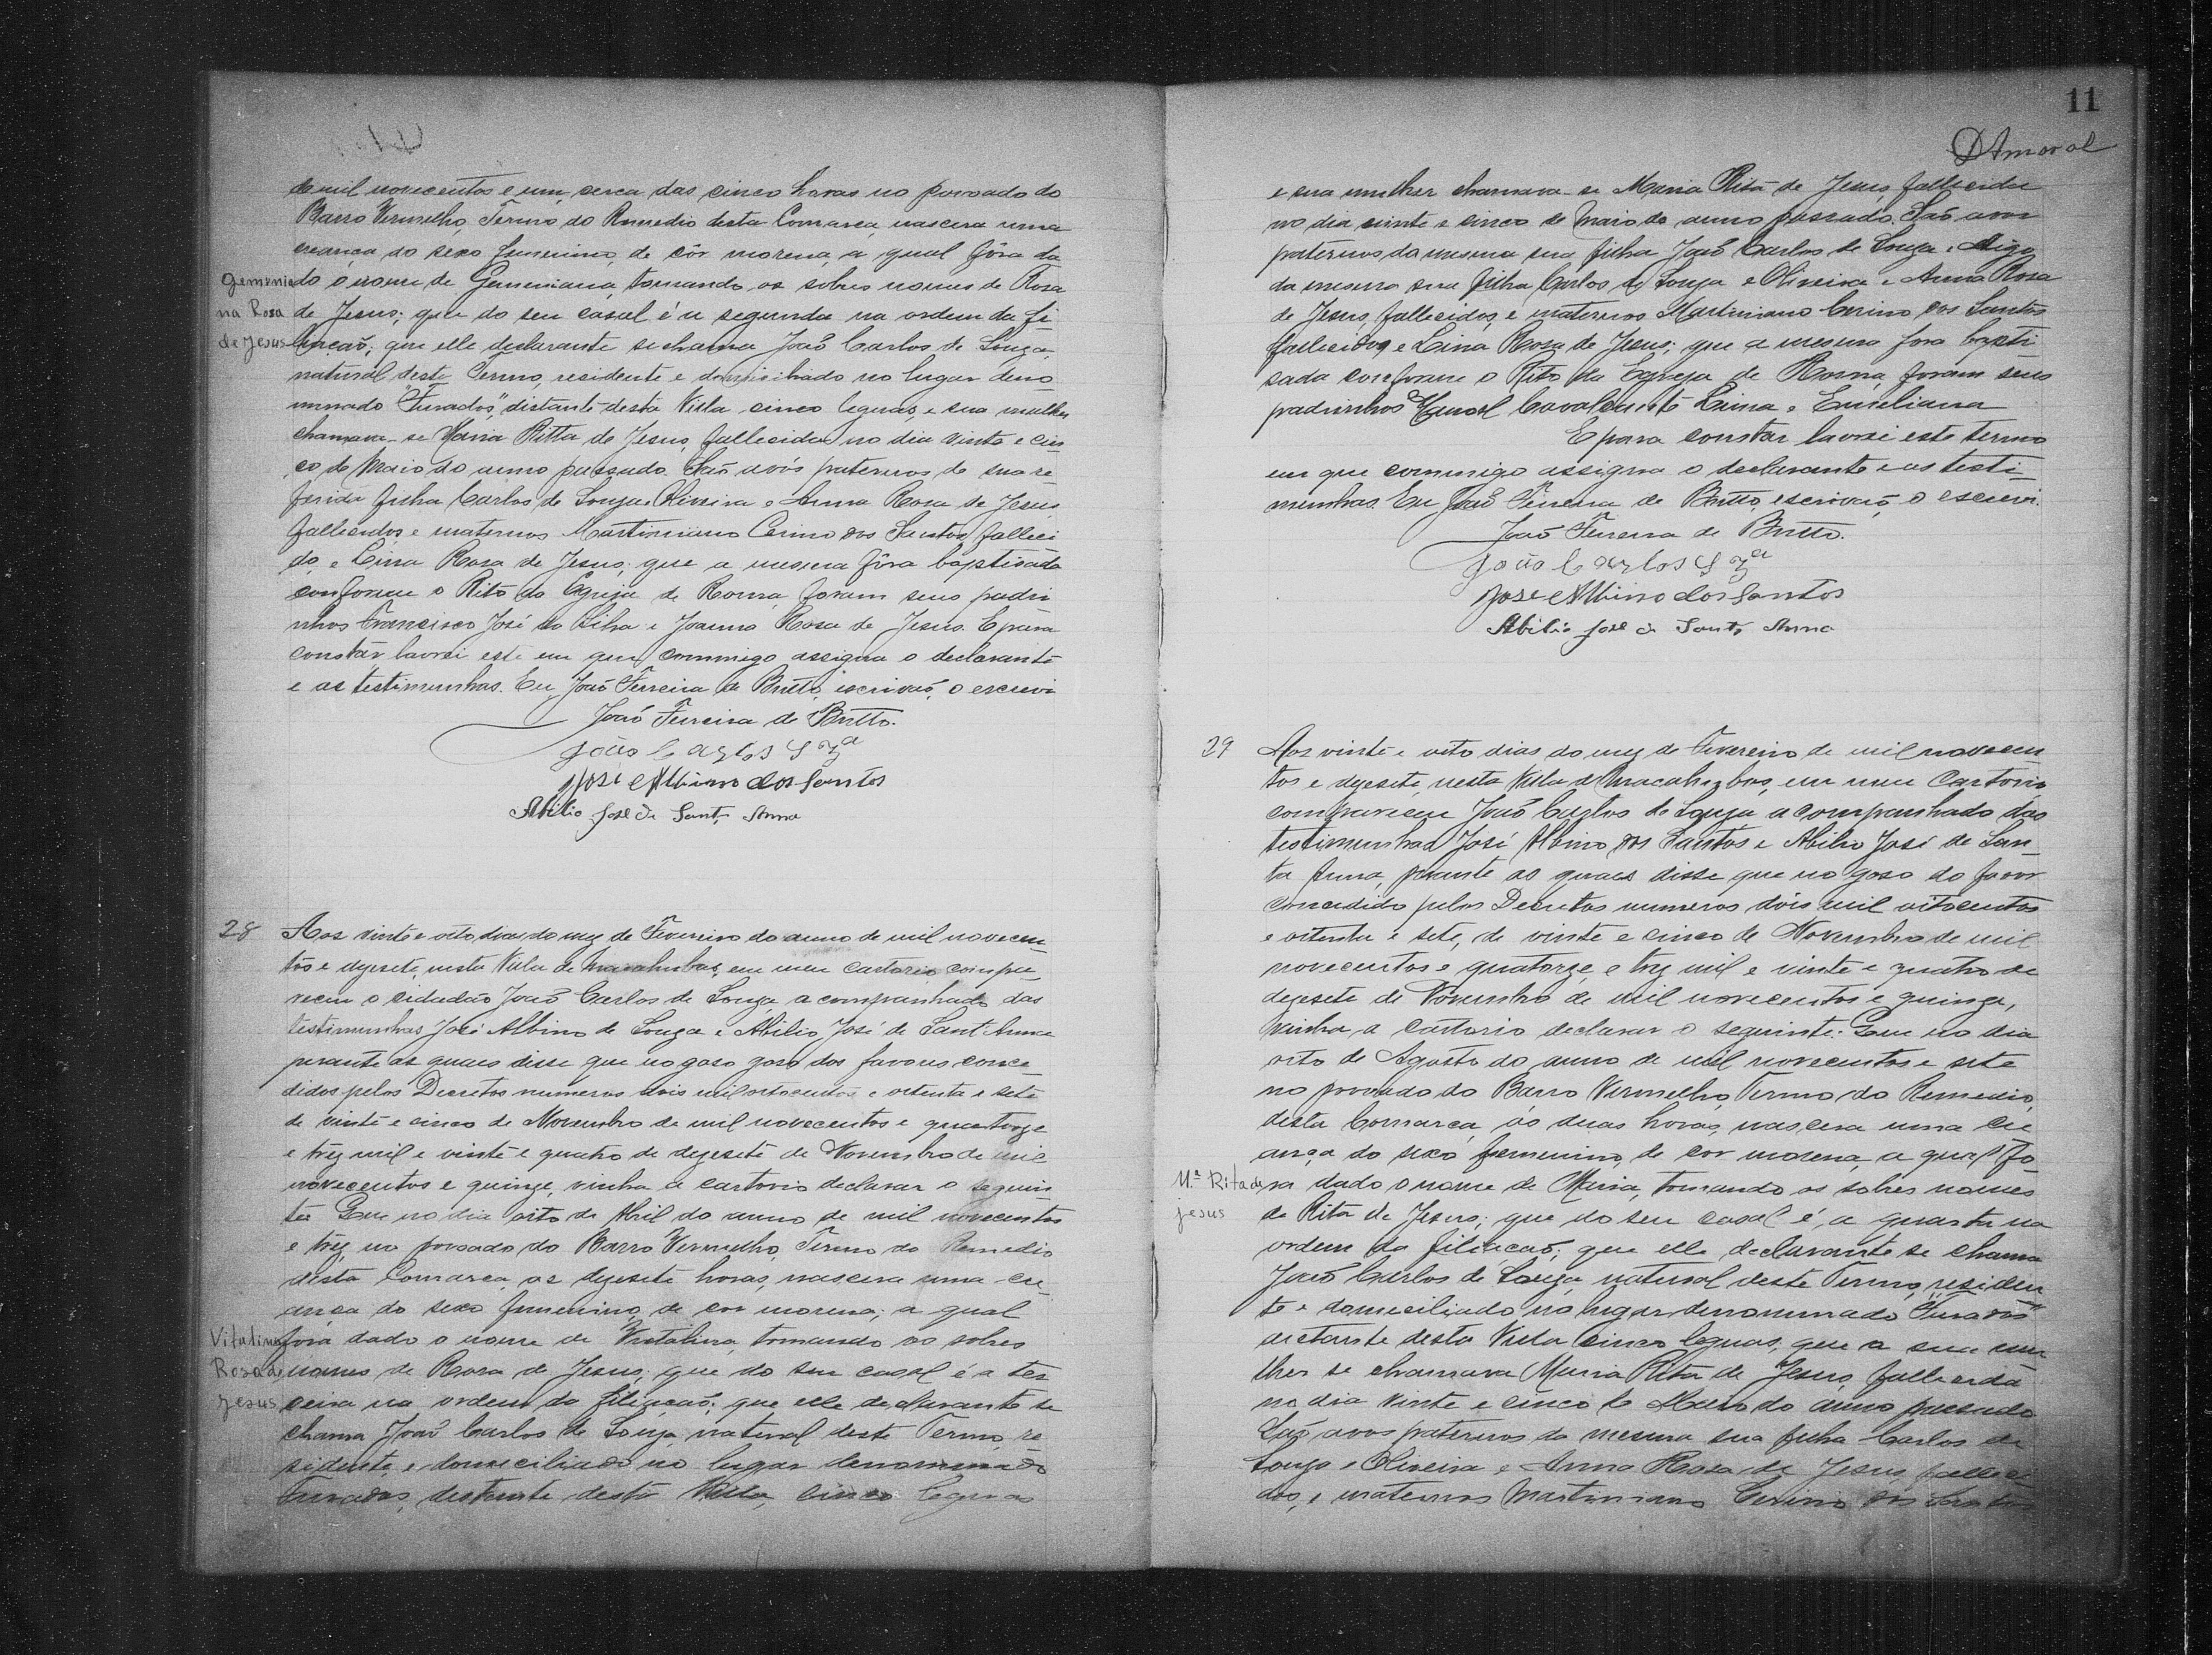 de mil novecentos e um, cerca das cinco horas no povoado do
Barro Vermelho, Termo do Remedio desta Comarca, nascera uma
creança do sexo femenino, de côr morena, a qual fôra da
Gemenia
do o nome de Gemeniana, tomando os sobres nomes de Rosa
na Rosa
de Jesus; que do seu casal é a segunda na ordem da fi
de Jesus
liação; que elle declarante se chama João Carlos de Souza,
natural deste Termo, residente e domiciliado no lugar deno
minado "Furados", distante desta Villa cinco leguas, e sua mulher
chamava-se Maria Ritta de Jesus, fallecida no dia vinte e cin
co de Maio do anno passado. São avós paternos de sua re
ferida filha Carlos de Souza e Oliveira e Anna Rosa de Jesus
fallecidos, e maternos Martiniano Cerino dos Santos, falleci
do, e Lina Rosa de Jesus; que a mesma fôra baptisada
conforme o Rito da Egreja de Roma, foram seus padri
nhos Francisco José da Silva e Joanna Rosa de Jesus. E para
constar lavrei este em que commigo assigna o declarante
e as testimunhas. Eu João Ferreira de Britto, escrivaõ, o escrevi
João Ferreira de Britto.
João Carlos Sza
José Albino dos Santos
Abilio José de Sant Anna
28 Aos vinte e oito dias do mez de Fevereiro do anno de mil novecen
tos e dezesete, nesta Villa de Macahubas, em meu cartorio compa
receu o cidadão João Carlos de Souza, acompanhado das
testimunhas José Albino de Souza e Abilio José de Sant'Anna
perante as quaes disse que no goso goso dos favores conce
didos pelos Decretos numeros dois mil oitocentos e oitenta e sete
de vinte e cinco de Novembro de mil novecentos e quatorze
e trez mil e vinte e quatro de dezesete de Novembro de mil
novecentos e quinze, vinha a cartorio declarar o seguin
te: Que no dia oito de Abril do anno de mil novecentos
e trez, no povoado do Barro Vermelho, Termo do Remedio
desta Comarca, as dezesete horas, nascera uma cri
ança do sexo femenino, de cor morena; a qual
Vitalina
fora dado o nome de Vitalina, tomando os sobres
Rosa de
nomes de Rosa de Jesus; que do seu casal é a ter
Jesus
ceira na ordem da filiação; que elle declarante se
chama João Carlos de Souza, natural deste Termo, re
sidente e domiciliado no lugar denominado
Furados, distante desta Villa, cinco leguas
11
DAmaral
e sua mulher chamava-se Maria Rita de Jesus, fallecida
no dia vinte e cinco de Maio do anno passado. São avos
paternos da mesma sua filha João Carlos de Souza, digo
da mesma sua filha Carlos de Souza e Oliveira e Anna Rosa
de Jesus, fallecidos, e maternos Martiniano Cerino dos Santos
fallecido, e Lina Rosa de Jesus; que a mesma fora bapti
sada conforme o Rito da Egreja de Roma, foram seus
padrinhos Manoel Cavalcante Lima e Emeliana
E para constar lavrei este termo
em que commigo assigna o declarante e as testi
munhas. Eu João Ferreira de Britto, escrivaõ, o escrevi.
João Ferreira de Britto.
João Carlos Sza
José Albino dos Santos
Abilio José de Sant Anna
29 Aos vinte e oito dias do mez de Fevereiro de mil novecen
tos e dezesete, nesta Villa de Macahubas, em meu Cartorio
compareceu João Carlos de Souza acompanhado das
testimunhas José Albino dos Santos e Abilio José de San
ta Anna, perante as quaes disse que no goso do favor
concedido pelos Decretos numeros dois mil oitocentos
e oitenta e sete, de vinte e cinco de Novembro de mil
novecentos e quatorze, e trez mil e vinte e quatro de
dezesete de Novembro de mil novecentos e quinze,
vinha a cartorio declarar o seguinte: Que no dia
oito de Agosto do anno de mil novecentos e sete
no povoado do Barro Vermelho, Termo do Remedio,
desta Comarca, ás duas horas, nascera uma cri
ança do sexo femenino, de cor morena, a qual fo
Mª Rita de
ra dado o nome de Maria, tomando os sobres nomes
Jesus
de Rita de Jesus; que do seu casal é, a quarta na
ordem da filiacaõ; que elle declarante se chama
João Carlos de Souza, natural deste Termo, residen
te e domiciliado no lugar denominado "Furados"
distante desta Villa cinco leguas; que a sua mu
lher se chamava Maria Rita de Jesus, fallecida
no dia vinte e cinco de Maio do anno passado
São avos paternos da mesma sua filha Carlos de
Souza e Oliveira e Anna Rosa de Jesus, falleci
dos, e maternos Martiniano Cerino dos Santos